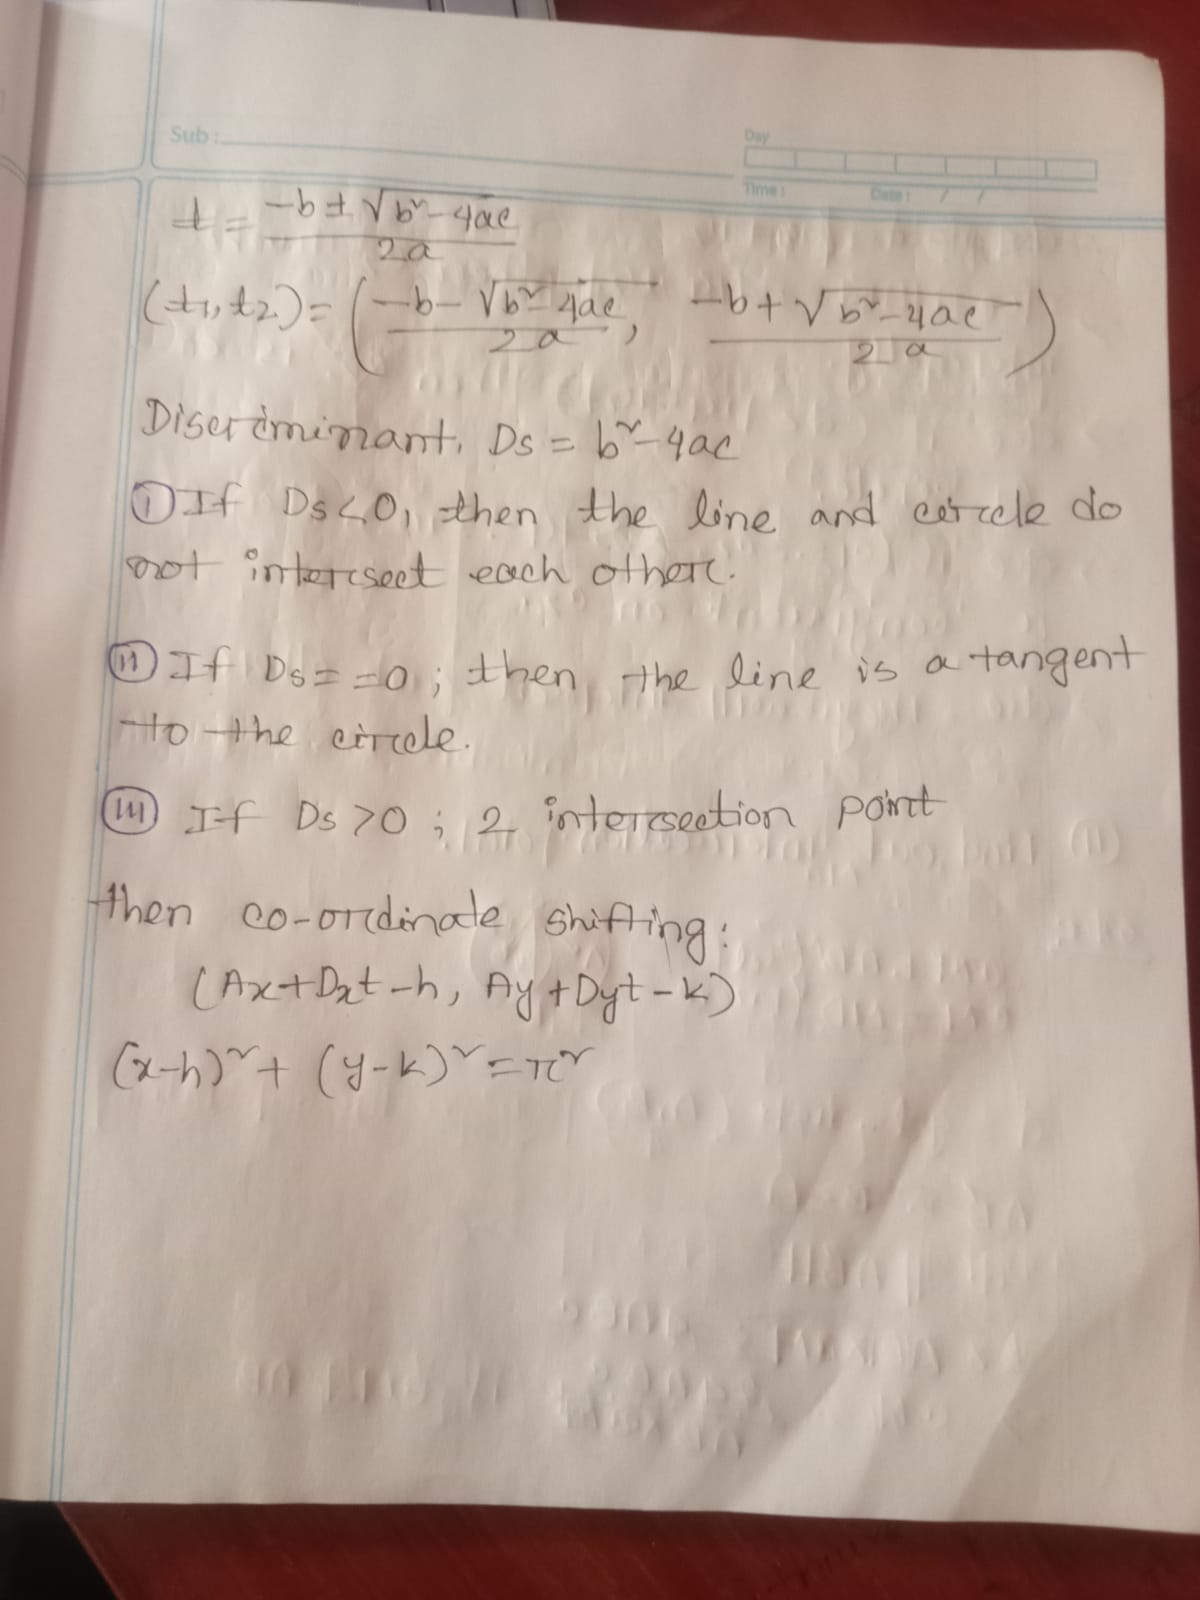 Sub:
Day
Time: Date: / /
t = (-b ± √(b² - 4ac)) / 2a
(t₁, t₂) = ((-b - √(b² - 4ac)) / 2a, (-b + √(b² - 4ac)) / 2a)
Discriminant, Ds = b² - 4ac
(i) If Ds < 0, then the line and circle do
not intersect each other.
(ii) If Ds = = 0 ; then, the line is a tangent
to the circle.
(iii) If Ds > 0 ; 2 intersection point
then co-ordinate shifting:
(Ax + Dxt - h, Ay + Dyt - k)
(x-h)² + (y-k)² = r²